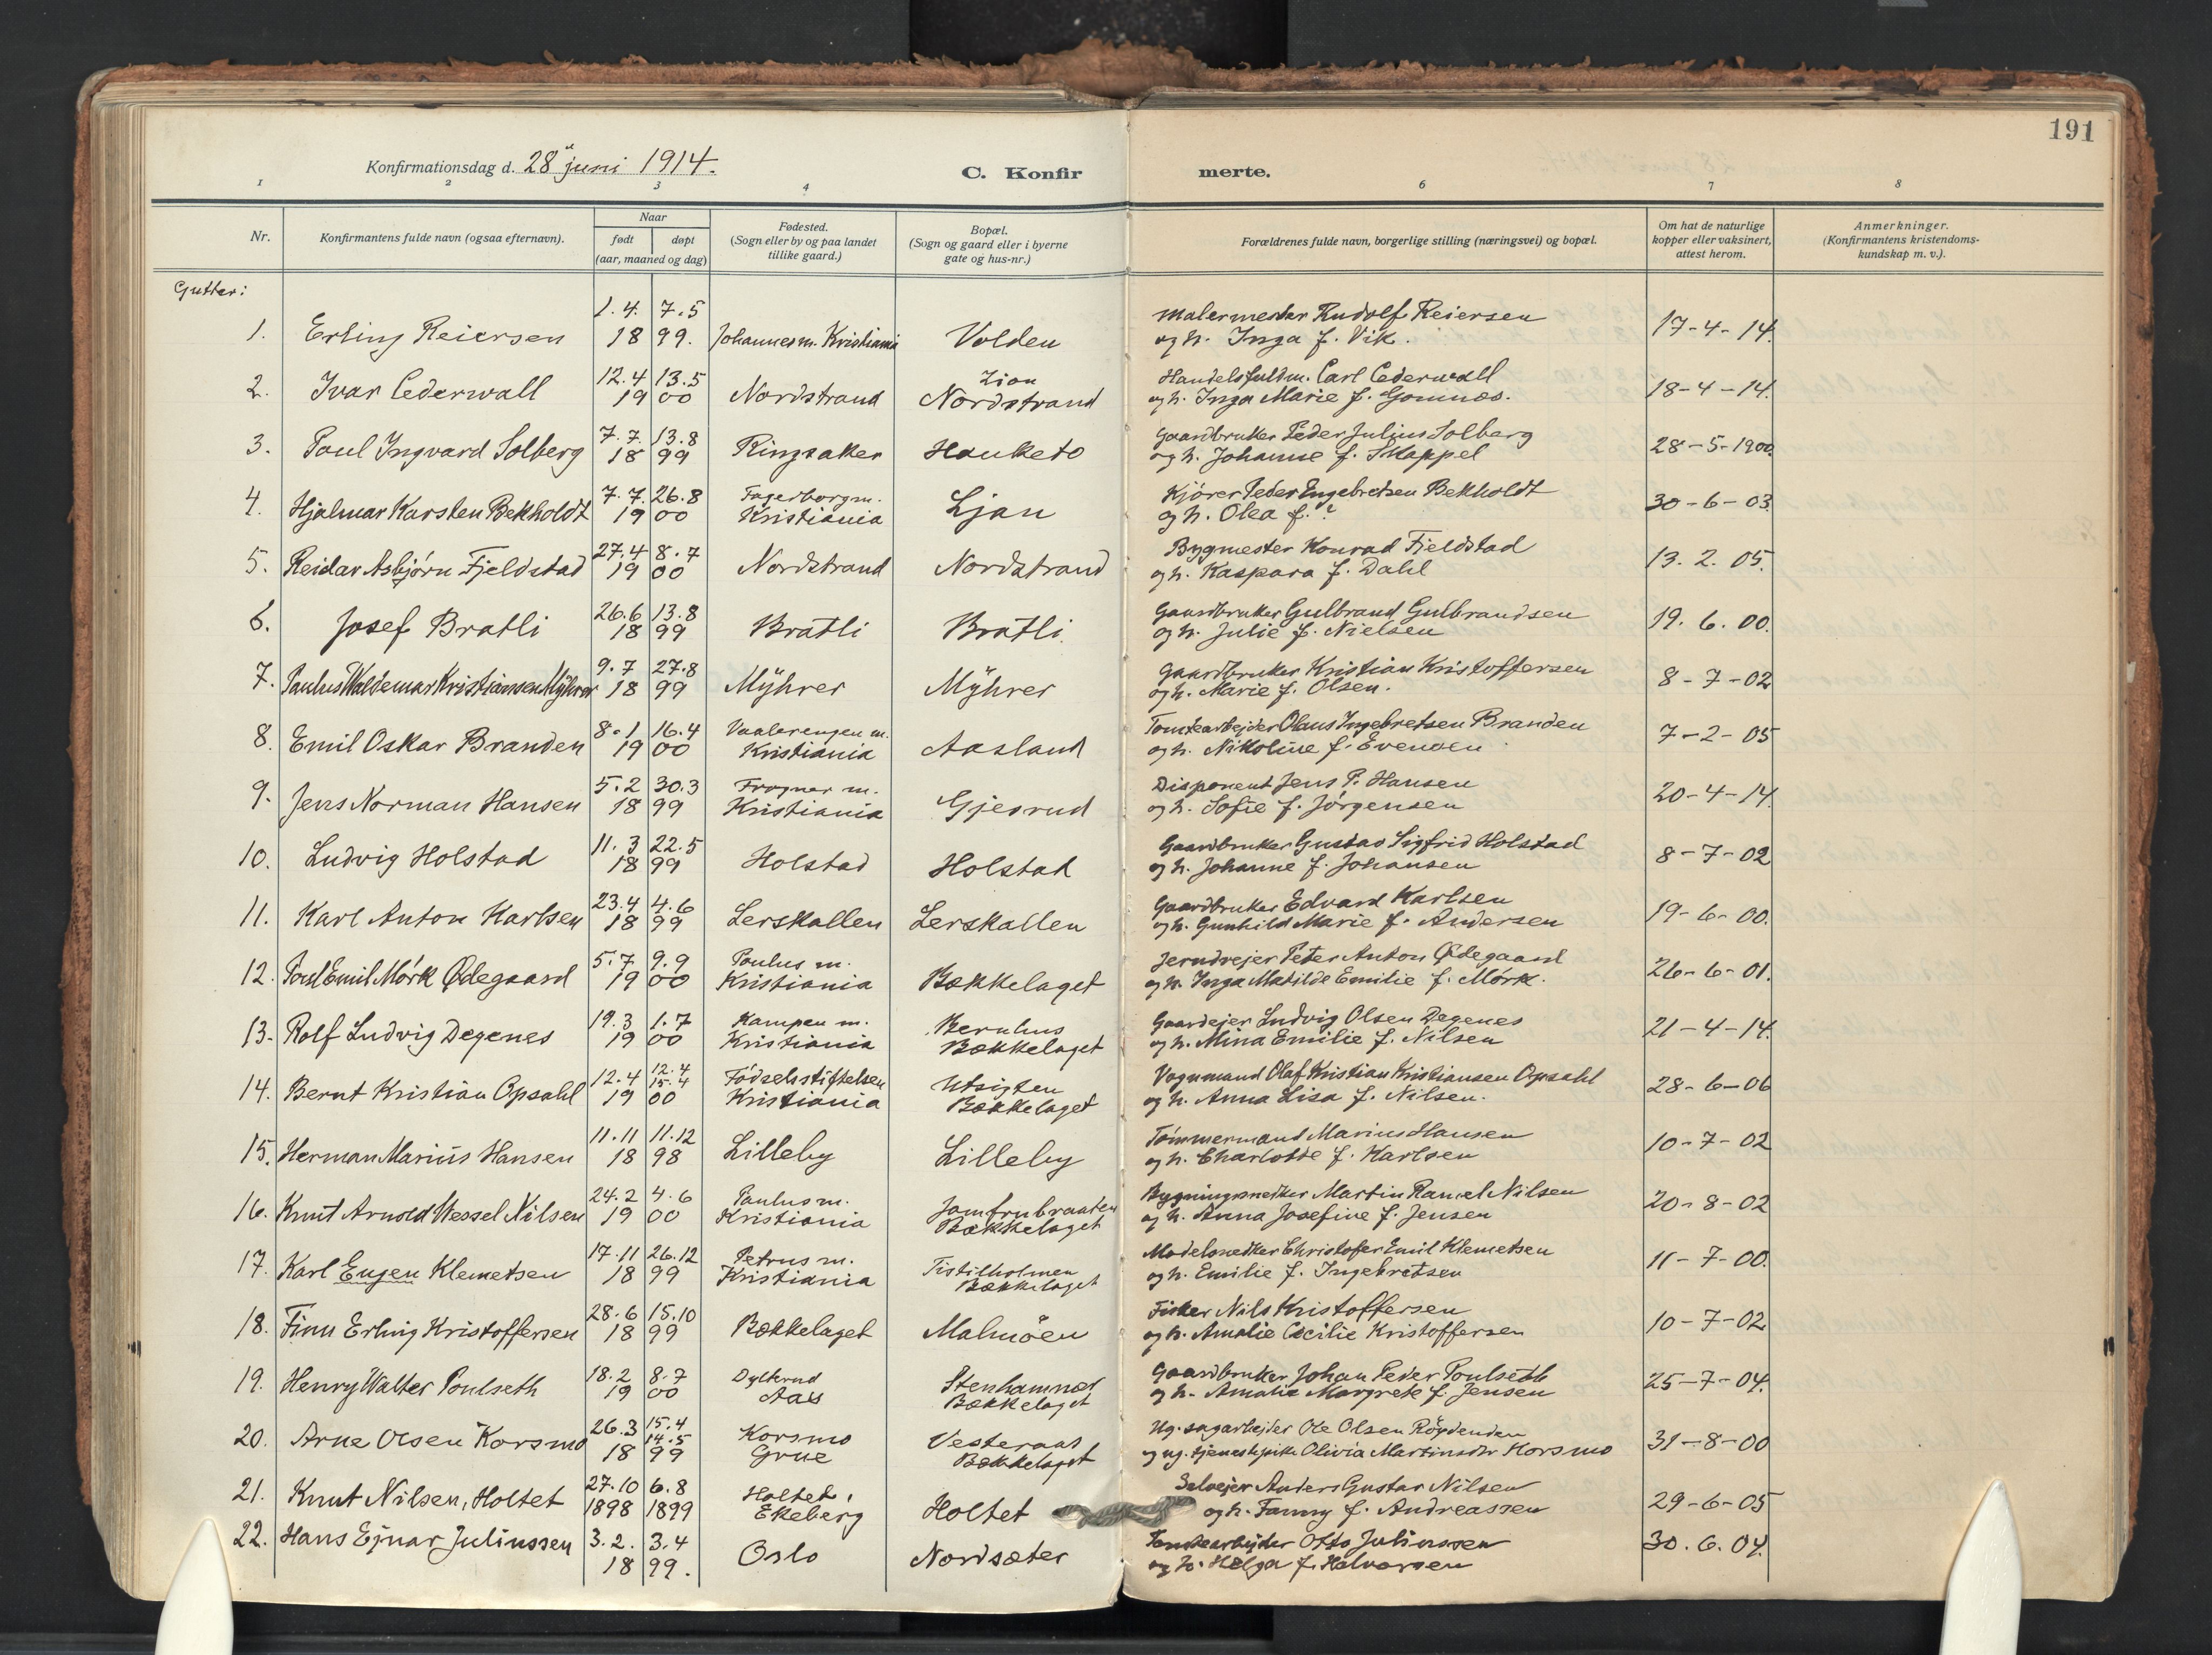 191
Konfirmationsdag d. 28 juni 1914.
C. Konfirmerte.
1 2 3 4 6 7 8
Nr.
Konfirmantens fulde navn (ogsaa efternavn).
Naar
født døpt
(aar, maaned og dag)
Fødested.
(Sogn eller by og paa landet
tillike gaard.)
Bopæl.
(Sogn og gaard eller i byerne
gate og hus-nr.)
Forældrenes fulde navn, borgerlige stilling (næringsvei) og bopæl.
Om hat de naturlige
kopper eller vaksinert,
attest herom.
Anmerkninger.
(Konfirmantens kristendoms-
kundskap m. v.).
Gutter:
1.4. 7.5 Malermester Rudolf Reiersen
1. Erling Reiersen 18 99. Johannesm. Kristiania Volden og h. Inga f. Vik. 17-4-14.
12.4 13.5 Zion Handelsfuldm. Carl Cederwall
2. Ivar Cederwall 19 00 Nordstrand Nordstrand og h. Inga Marie f. Gomnæs. 18-4-14.
7.7. 13.8 Gaardbruker Peder Julius Solberg
3. Paul Ingvard Solberg 18 99 Ringsaker Hauketo og h. Johanne f. Skappel 28-5-1900.
7.7. 26.8 Fagerborg m. Kjører Peder Engebretsen Bekholdt
4. Hjalmar Karsten Bekholdt 19 00 Kristiania Ljan og h. Olea f. ? 30-6-03.
27.4 8.7 Bygmester Konrad Fjeldstad
5. Reidar Asbjørn Fjeldstad 19 00 Nordstrand Nordstrand og h. Kaspara f. Dahl 13.2.05.
26.6 13.8 Gaardbruker Gulbrand Gulbrandsen
6. Josef Bratli 18 99 Bratli Bratli og h. Julie f. Nielsen 19.6.00.
9.7 27.8 Gaardbruker Kristian Kristoffersen
7. Paulus Waldemar Kristiansen Myhrer 18 99 Myhrer Myhrer og h. Marie f. Olsen. 8-7-02
8.1 16.4 Vaalerengen m. Tomtearbejder Olaus Ingebretsen Branden
8. Emil Oskar Branden 19 00 Kristiania Aasland og h. Nikoline f. Evensen 7-2-05
5.2 30.3 Frogner m. Disponent Jens P. Hansen
9. Jens Norman Hansen 18 99 Kristiania Gjesrud og h. Sofie f. Jørgensen 20-4-14.
11.3 22.5 Gaardbruker Gustav Sigfrid Holstad
10. Ludvig Holstad 18 99 Holstad Holstad og h. Johanne f. Johansen 8-7-02
23.4 4.6 Gaardbruker Edvard Karlsen
11. Karl Anton Karlsen 18 99 Lerskallen Lerskallen og h. Gunhild Marie f. Andersen 19-6-00.
5.7 9.9 Paulus m. Jerndrejer Peter Anton Ødegaard
12. Poul Emil Mørk Ødegaard 19 00 Kristiania Bækkelaget og h. Inga Matilde Emilie f. Mørk. 26-6-01.
19.3 1.7 Kampen m. Bernhus Gaardejer Ludvig Olsen Degenes
13. Rolf Ludvig Degenes 19 00 Kristiania Bækkelaget og h. Mina Emilie f. Nilsen 21-4-14.
12.4 12.4 15.4 Fødselsstiftelsen Utsigten Vognmand Olaf Kristian Kristiansen Opsahl
14. Bernt Kristian Opsahl 19 00 Kristiania Bækkelaget og h. Anna Lisa f. Nilsen. 28-6-06
11.11 11.12 Tømmermand Marius Hansen
15. Herman Marius Hansen 18 98 Lilleby Lilleby og h. Charlotte f. Karlsen 10-7-02
24.2 4.6 Paulus m. Jomfrubraaten Bygningssnedker Martin Ramel Nilsen
16. Knut Arnold Wessel Nilsen 19 00 Kristiania Bækkelaget og h. Anna Josefine f. Jensen 20-8-02
17.11 26.12 Petrus m. Tistilholmen Modelsnedker Christofer Emil Klemetsen
17. Karl Eugen Klemetsen 18 99 Kristiania Bækkelaget og h. Emilie f. Ingebretsen 11-7-00.
28.6 15.10 Fisker Nils Kristoffersen
18. Finn Erling Kristoffersen 18 99 Bækkelaget Malmöen og h. Amalie Cecilie Kristoffersen 10-7-02
18.2 8.7 Dyltrud Stenhamnas Gaardbruker Johan Peder Poulseth
19. Henry Walter Poulseth 19 00 Aas Bækkelaget og h. Amalie Margrete f. Jensen 25-7-04.
26.3 15.4 14.5 Korsmo Vesteraas Ug. sagarbejder Ole Olsen Röydenden
20. Arne Olsen Korsmo 18 99 Grue Bækkelaget og ug. tjenestepike Olivia Martinsdtr Korsmo 31-8-00
27.10 6.8 Holtet, Selvejer Anders Gustav Nilsen
21. Knut Nilsen, Holtet 1898 1899 Ekeberg Holtet og h. Fanny f. Andreassen 29-6-05
22. Hans Ejnar Juliussen 3.2. 3.4 Tomtearbejder Otto Juliussen 30.6.04.
18 99. Oslo Nordsæter og h. Helga f. Halvorsen